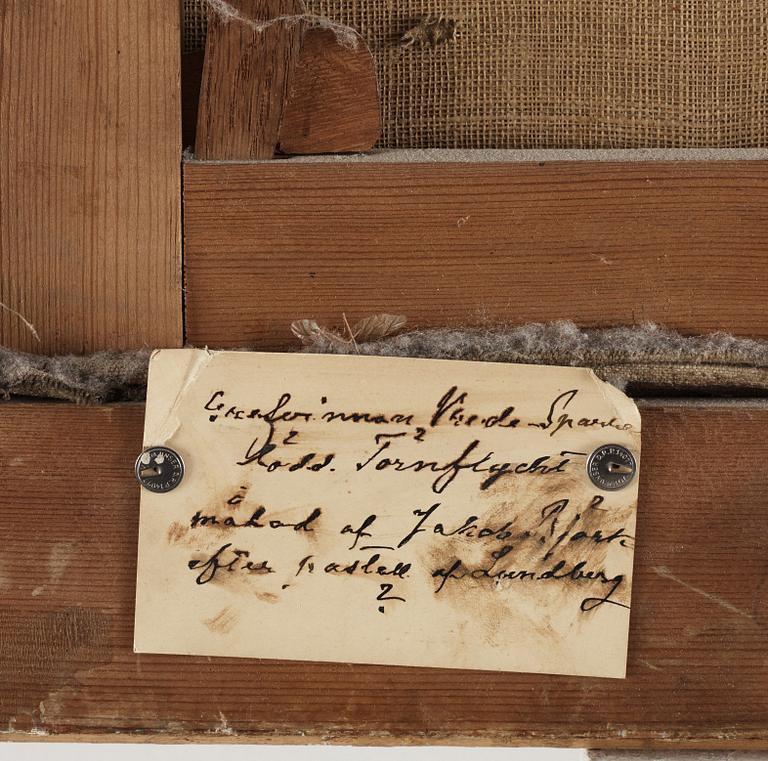 Grefvinnan Vrede-Sparre
född. Törnflycht
målad af Jakob Björk
efter pastell af Lundberg
?